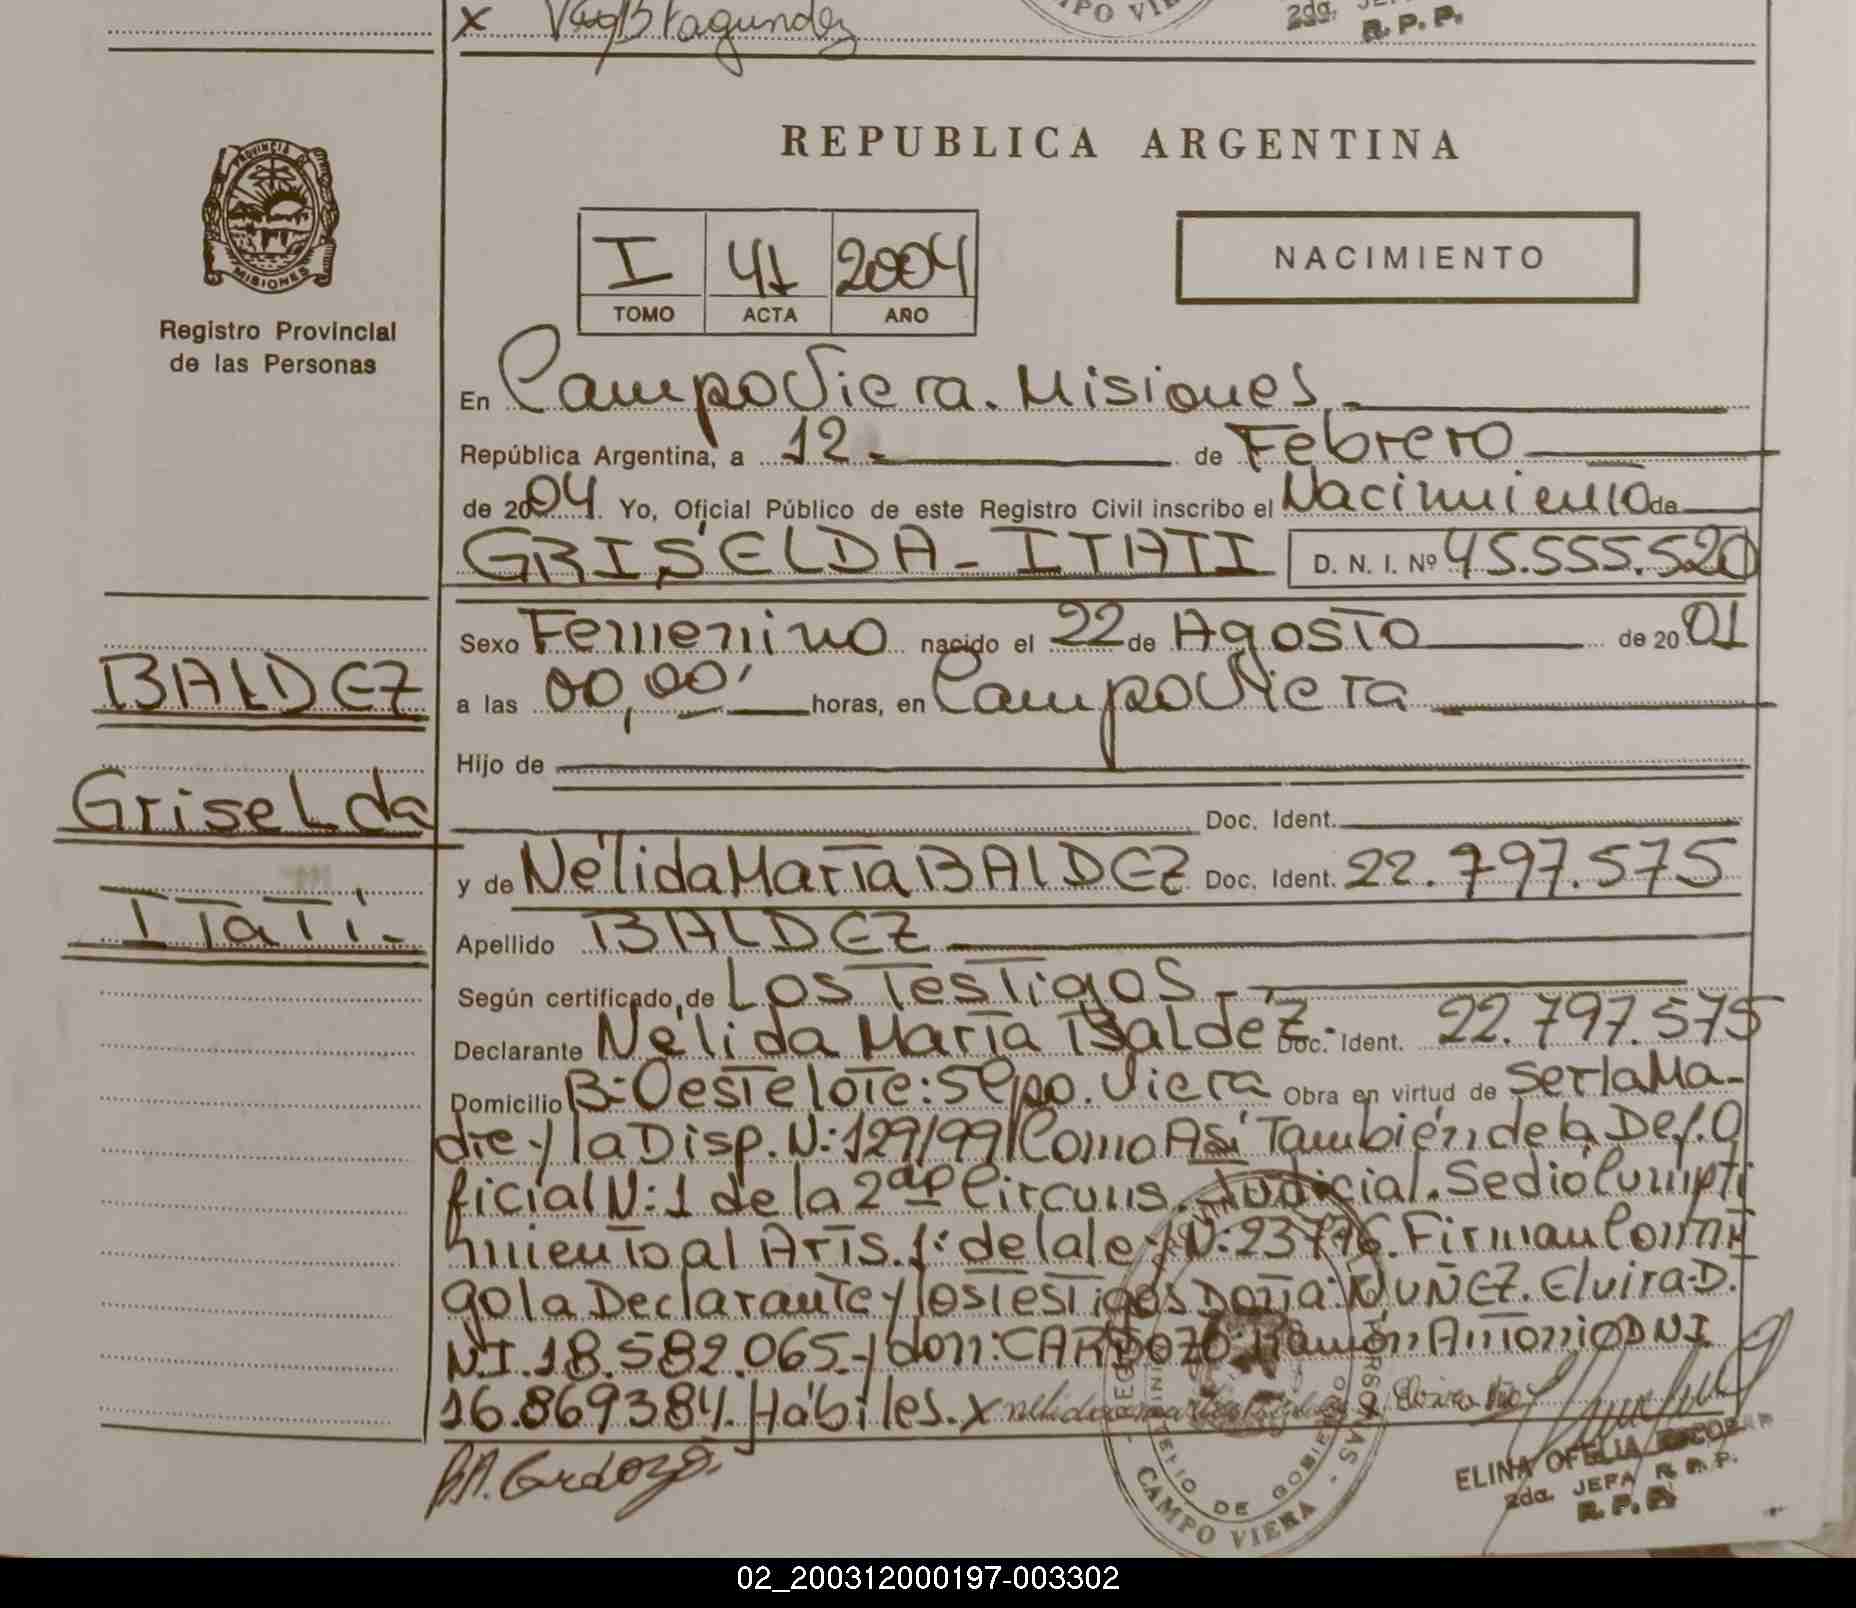 2da.
R. P. P.
REPUBLICA ARGENTINA
PROVINCIA
MISIONES
Registro Provincial
de las Personas
I 41 2004
TOMO ACTA AÑO
NACIMIENTO
En Campo Viera. Misiones.
República Argentina, a 12 de Febrero
de 2004. Yo, Oficial Público de este Registro Civil inscribo el Nacimiento de
GRISELDA - ITATI D. N. I. Nº 45.555.520
Sexo Femenino nacido el 22 de Agosto de 2001
BALDEZ
a las 00,00' horas, en Campo Viera
Hijo de
Griselda
Doc. Ident.
y de Nélida María BALDEZ Doc. Ident. 22.797.575
Itatí.-
Apellido BALDEZ
Según certificado, de Los Testigos.-
Declarante Nélida María Baldez. Doc. Ident. 22.797.575
Domicilio B: Oeste lote: 5 Cpo. Viera Obra en virtud de ser la Ma-
dre y la Disp. N: 129/99 Como Así También de la Def. O
ficial N: 1 de la 2da Circuns. Judicial. Se dió Cumpli
miento al Arts. 1: de la ley N: 23776. Firman Conmi
go la Declarante y los testigos Doña: NUÑEZ. Elvira D.
NI. 18.582.065 y don: CARDOZO: Ramón Antonio DNI
16.869384. Hábiles. x
R.A. Cardozo.
MINISTERIO DE GOBIERNO
CAMPO VIERA
ELINA OFELIA
2da. JEFA R. P. P.
R. P. P.
02_200312000197-003302